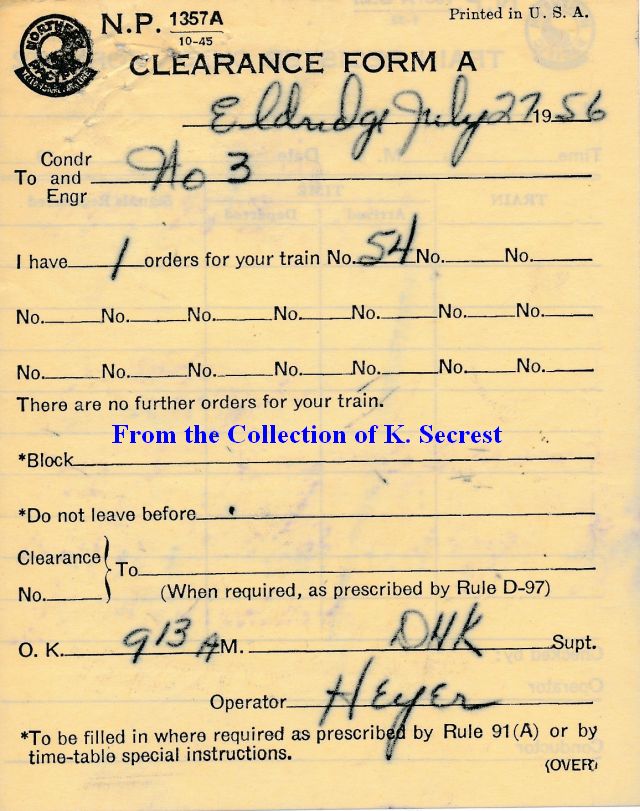 NORTHERN PACIFIC
YELLOWSTONE PARK LINE
N.P. 1357A
10-45
Printed in U. S. A.
CLEARANCE FORM A
Eldridge July 27 1956
Condr
To and No 3
Engr
I have 1 orders for your train No. 54 No. No.
No. No. No. No. No. No. No.
No. No. No. No. No. No. No.
There are no further orders for your train.
From the Collection of K. Secrest
*Block
*Do not leave before
Clearance
To
No.
(When required, as prescribed by Rule D-97)
O. K. 913 A M. DHK Supt.
Operator Heyer
*To be filled in where required as prescribed by Rule 91(A) or by
time-table special instructions.
(OVER)